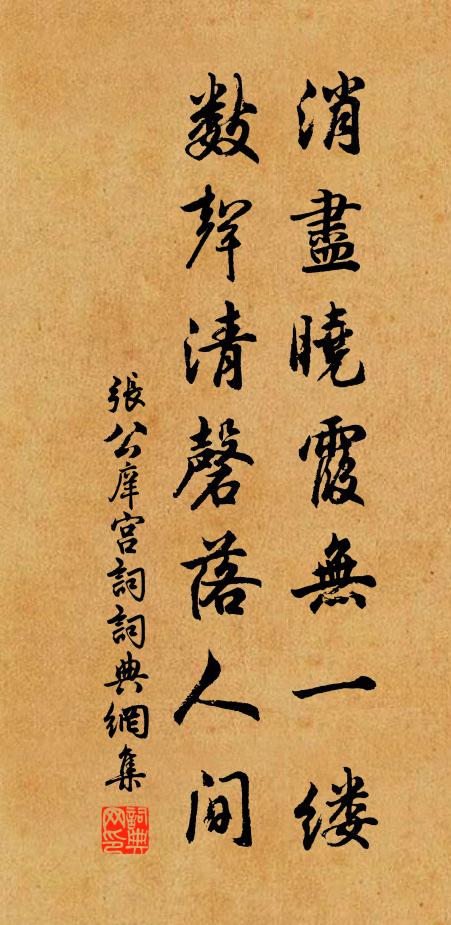 消盡曉霞無一缕
數聲清磬落人间
張公庠宮詞詞典網集
詞典网印